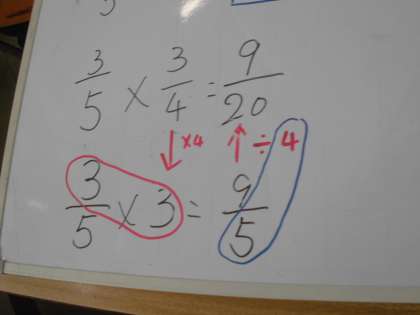 5
3/5 × 3/4 = 9/20
↓ ×4 ↑ ÷ 4
3/5 × 3 = 9/5